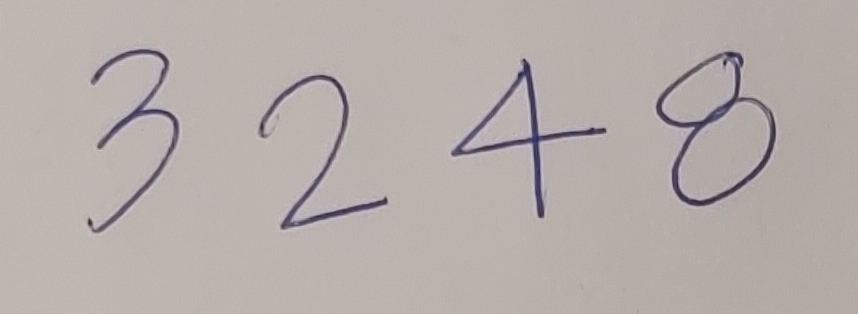 3 2 4 8